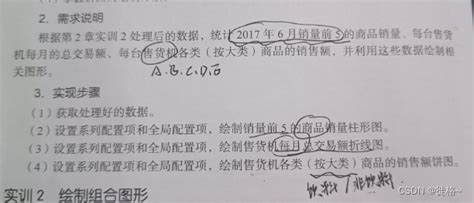 2. 需求说明
根据第2章实训2处理后的数据，统计2017年6月销量前5的商品销量、每台售货
机每月的总交易额、每台售货机各类（按大类）商品的销售额，并利用这些数据绘制相
关图形。
A.B.C.D.E
3. 实现步骤
（1）获取处理好的数据。
（2）设置系列配置项和全局配置项，绘制销量前5的商品销量柱形图。
（3）设置系列配置项和全局配置项，绘制售货机每月总交易额折线图。
（4）设置系列配置项和全局配置项，绘制售货机各类（按大类）商品的销售额饼图。
饮料/非饮料
实训2 绘制组合图形